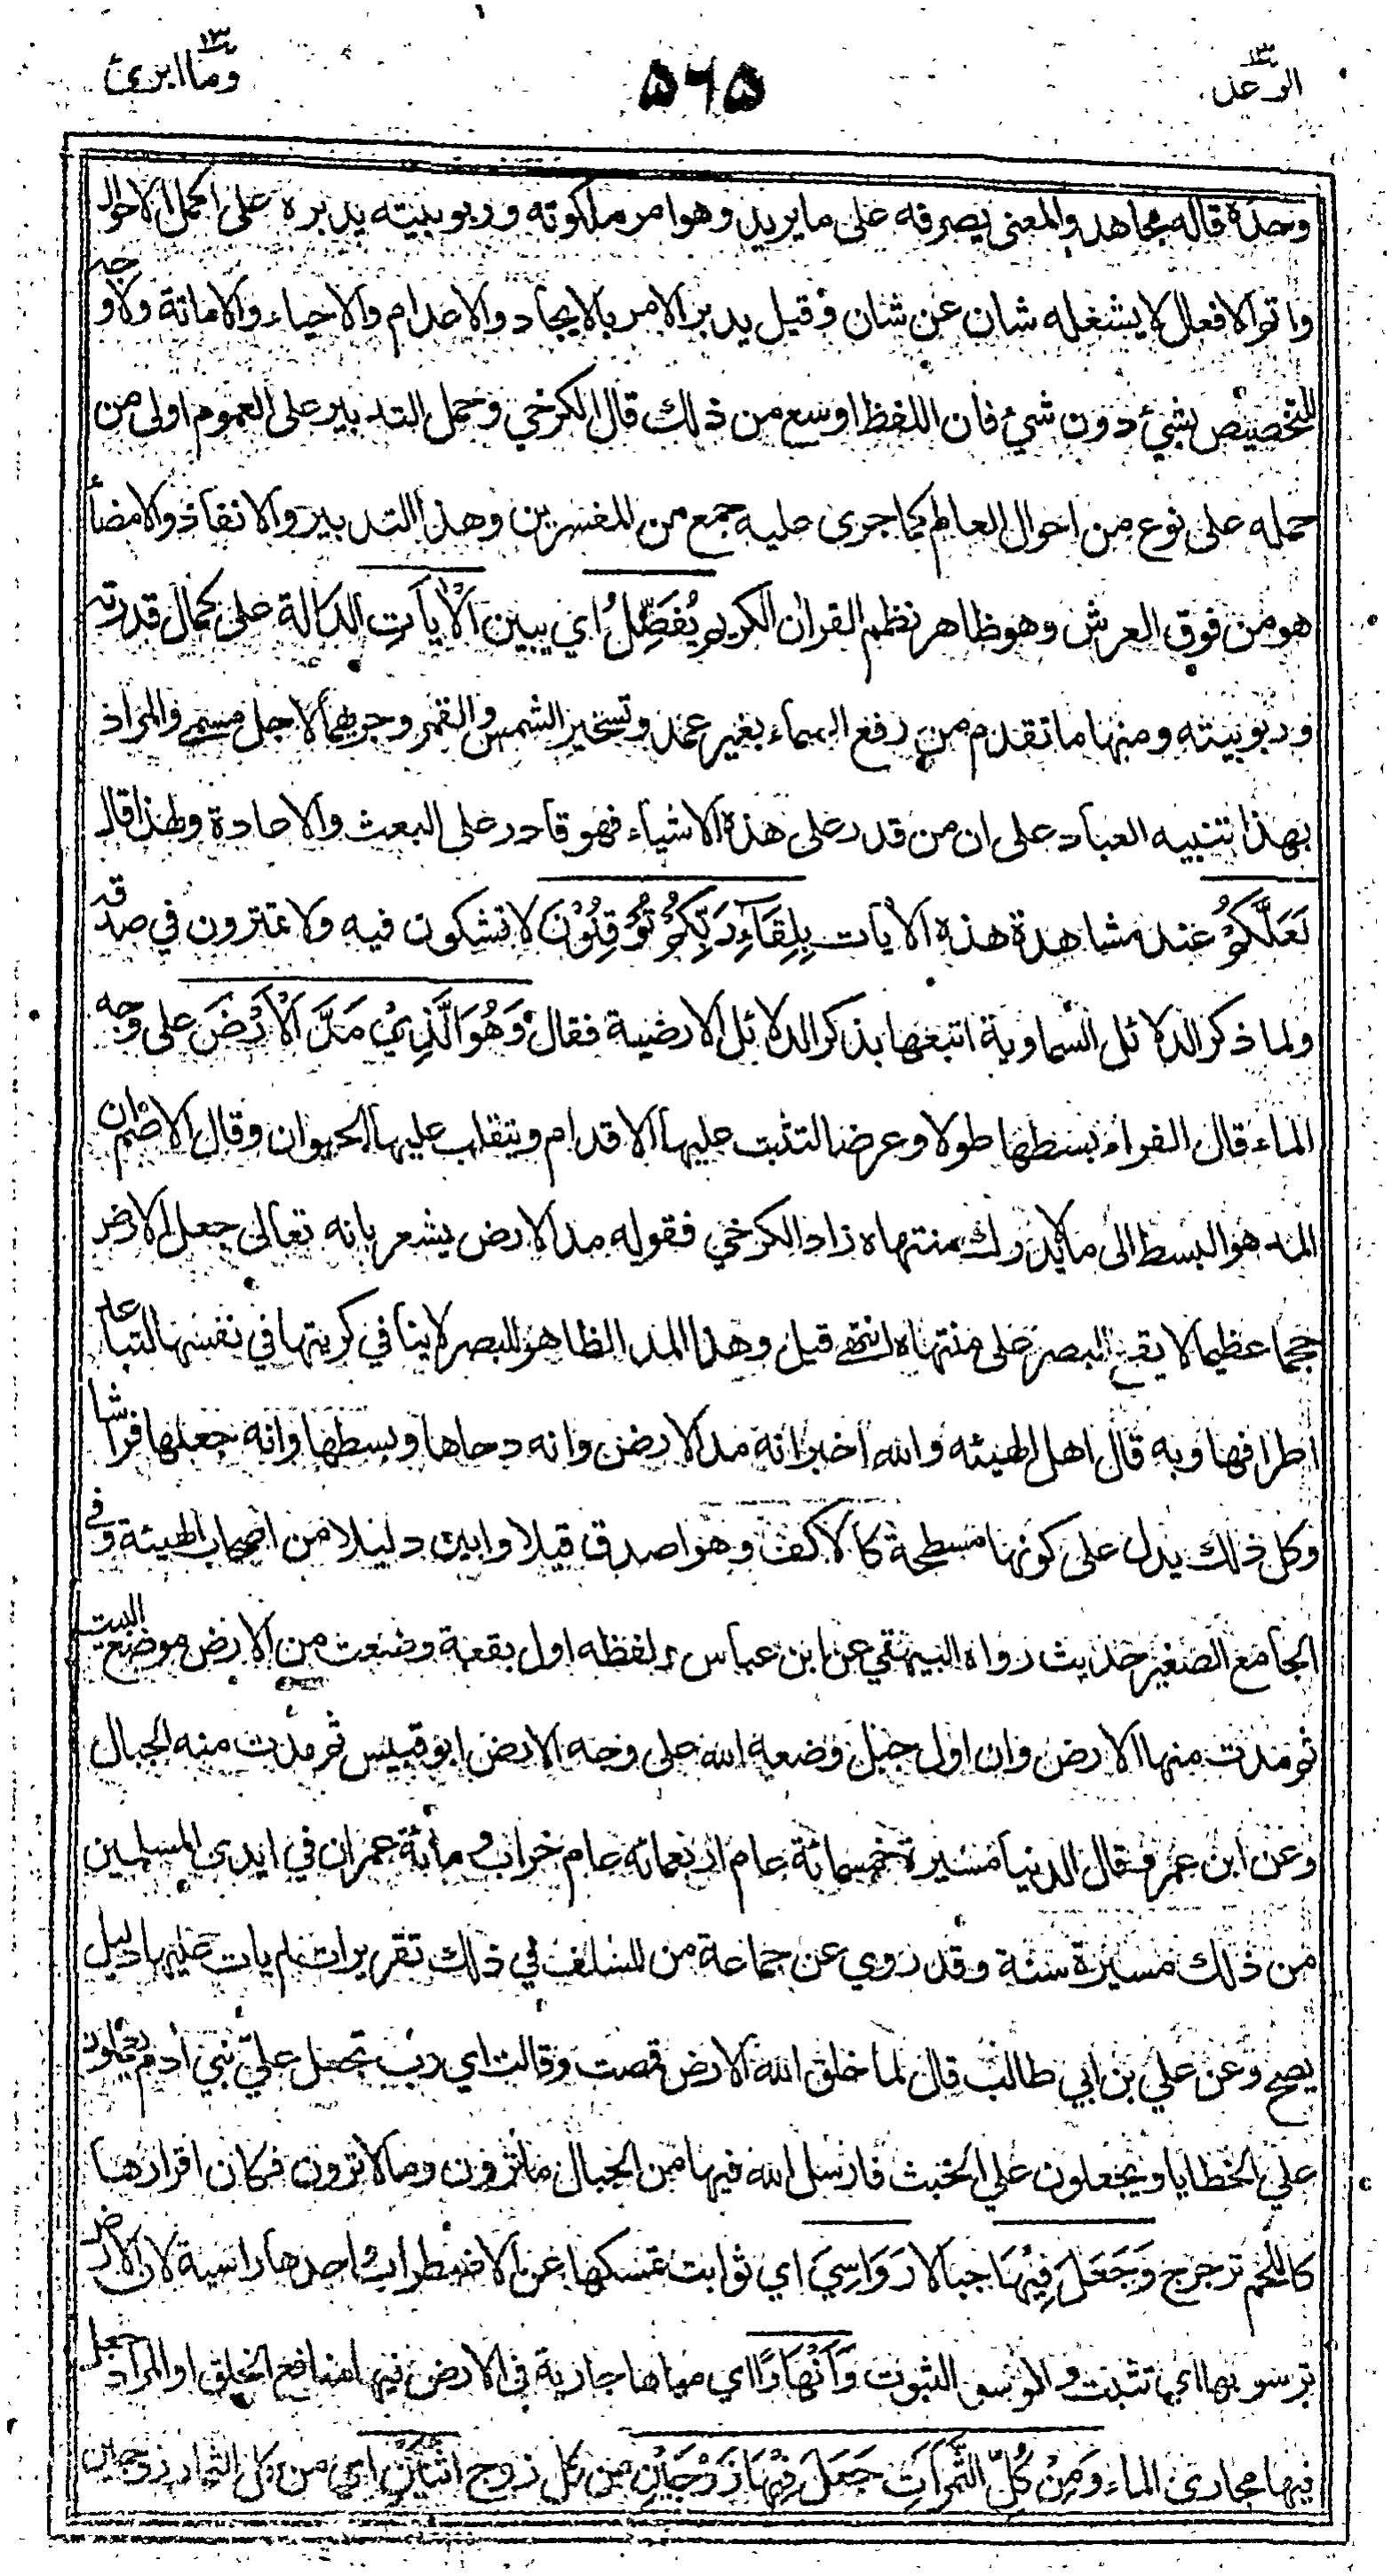 الرعد ١٣
٥٦٥
وما ابرئ ١٣
وحده قاله مجاهد والمعنى يصرفه على ما يريد وهو امر ملكوته وربوبيته يدبره على اكمل الاحوال
واتم الافعال لا يشغله شان عن شان وقيل يدبر الامر بالايجاد والاعدام والاحياء والاماتة ولا وجه
للتخصيص بشيء دون شيء فان اللفظ اوسع من ذلك قال الكرخي وحمل التدبير على العموم اولى من
حمله على نوع من احوال العالم كما جرى عليه جمع من المفسرين وهذا التدبير والانفاذ والامضاء
هو من فوق العرش وهو ظاهر نظم القران الكريم يُفَصِّلُ اي يبين الْاٰيَاتِ الدالة على كمال قدرته
وربوبيته ومنها ما تقدم من رفع السماء بغير عمد وتسخير الشمس والقمر وجريهما لاجل مسمى والمراد
بهذا تنبيه العباد على ان من قدر على هذه الاشياء فهو قادر على البعث والاعادة ولهذا قال
لَعَلَّكُمْ عند مشاهدة هذه الاٰيات بِلِقَآءِ رَبِّكُمْ تُوْقِنُوْنَ لا تشكون فيه ولا تمترون في صدقه
ولما ذكر الدلائل السماوية اتبعها بذكر الدلائل الارضية فقال وَهُوَ الَّذِيْ مَدَّ الْاَرْضَ على وجه
الماء قال الفراء بسطها طولا وعرضا لتثبت عليها الاقدام ويتقلب عليها الحيوان وقال الاصم ان
المد هو البسط الى ما لا يدرك منتهاه زاد الكرخي فقوله مد الارض يشعر بانه تعالى جعل الارض
حجما عظيما لا يقع البصر على منتهاه انتهى قيل وهذا المد الظاهر للبصر لا ينافي كريتها في نفسها لتباعد
اطرافها وبه قال اهل الهيئه والله اخبر انه مد الارض وانه دحاها وبسطها وانه جعلها فراشا
وكل ذلك يدل على كونها مسطحة كالاكف وهو اصدق قيلا وابين دليلا من اصحاب الهيئة وفي
الجامع الصغير حديث رواه البيهقي عن ابن عباس ولفظه اول بقعة وضعت من الارض موضع البيت
ثم مدت منها الارض وان اول جبل وضعه الله على وجه الارض ابو قبيس ثم مدت منه الجبال
وعن ابن عمرو قال الدنيا مسيرة خمسمائة عام اربعمائة عام خراب ومائة عمران في ايدي المسلمين
من ذلك مسيرة سنة وقد روي عن جماعة من السلف في ذلك تقريرات لم يات عليها دليل
يصح وعن علي بن ابي طالب قال لما خلق الله الارض قمصت وقالت اي رب تجعل عليّ بني ادم يعملون
علي الخطايا ويجعلون علي الخبث فارسل الله فيها من الجبال ما ترون وما لا ترون فكان اقرارها
كاللحم ترجرج وَجَعَلَ فِيْهَا جبالا رَوَاسِيَ اي ثوابت تمسكها عن الاضطراب واحدها راسية لان الارض
ترسو بها اي تثبت والرسو الثبوت وَاَنْهَارًا اي مياها جارية في الارض فيها منافع الخلق او المراد جعل
فيها مجاري الماء وَمِنْ كُلِّ الثَّمَرَاتِ جَعَلَ فِيْهَا زَوْجَيْنِ من كل زوج اثْنَيْنِ اي من كل الثمار زوجين